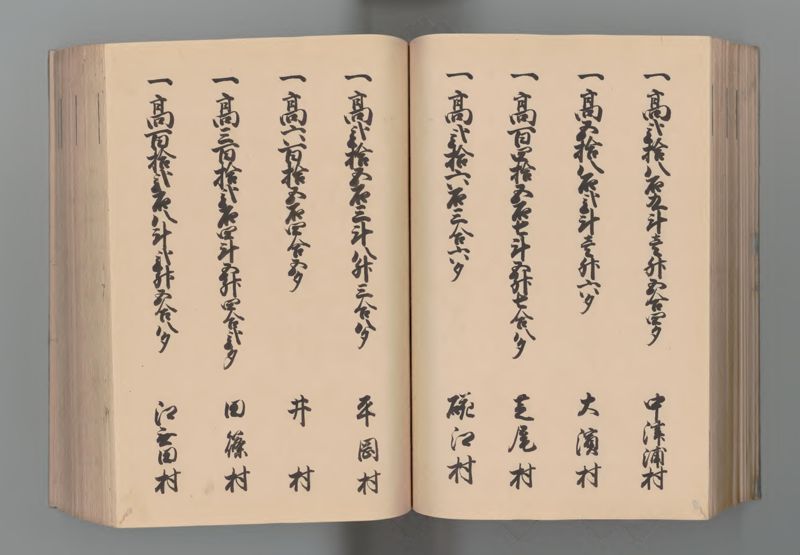 一高弐拾八石五斗壱升五合四夕 中津浦村
一高五拾八石弐斗壱升六夕 大濱村
一高百四拾五石七斗五升七合八夕 芝尾村
一高弐拾六石三合六夕 礒江村
一高弐拾五石三斗八升三合八夕 平岡村
一高六百拾五石四合五夕 井村
一高三百拾弐石四斗五升四合弐夕 田篠村
一高百拾弐石八斗弐升五合八夕 江無田村